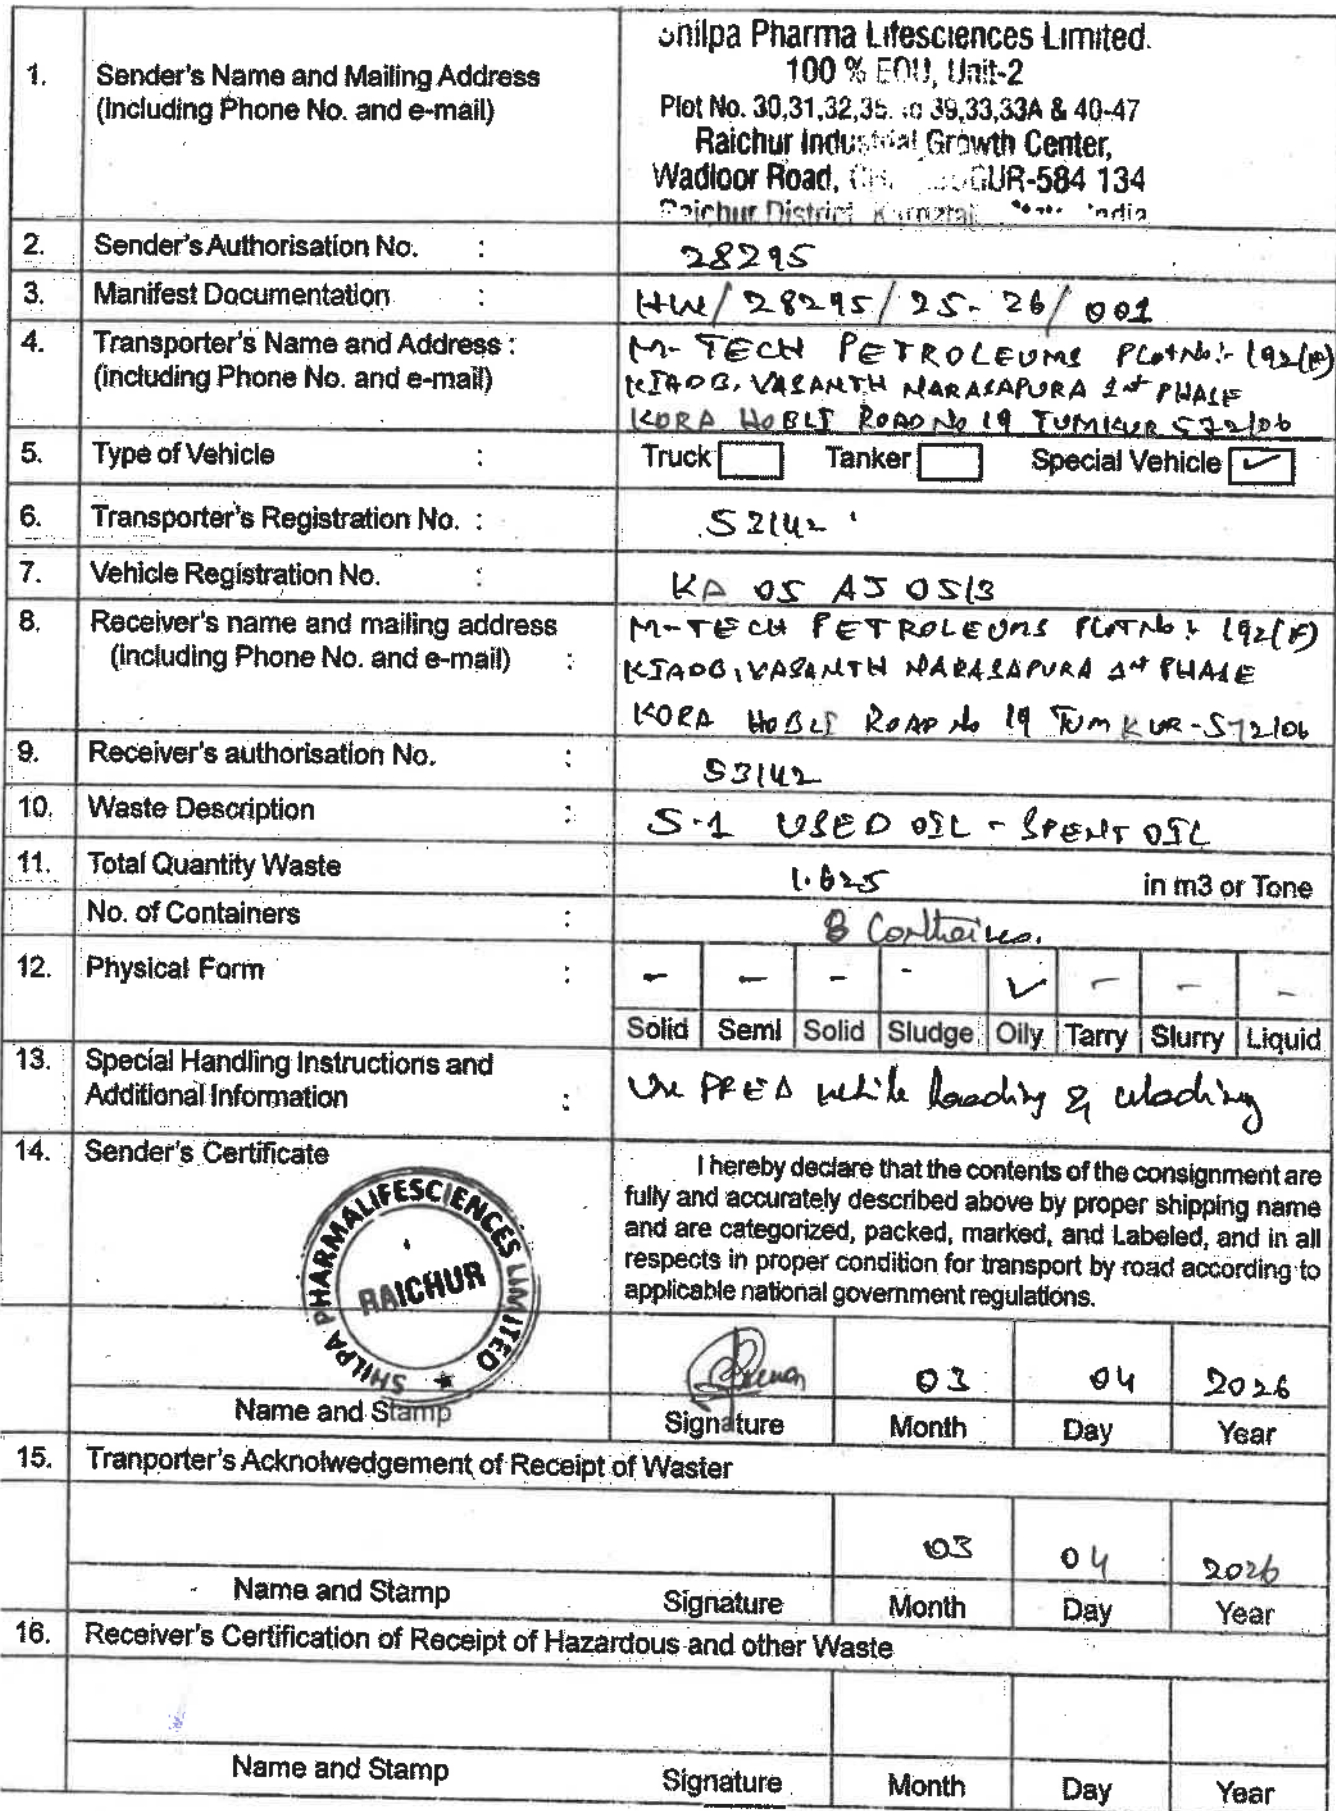 1. Sender's Name and Mailing Address
(including Phone No. and e-mail)
Shilpa Pharma Lifesciences Limited.
100 % EOU, Unit-2
Plot No. 30,31,32,35. to 39,33,33A & 40-47
Raichur Industrial Growth Center,
Wadloor Road, GUR-584 134
Raichur District Karnataka State India
2. Sender's Authorisation No. : 28295
3. Manifest Documentation : HW/28295/25-26/001
4. Transporter's Name and Address :
(including Phone No. and e-mail)
M-TECH PETROLEUMS PLOTNo:- 192(P)
KIADB, VASANTH NARASAPURA 1st PHASE
KORA HOBLI ROAD No 19 TUMKUR 572106
5. Type of Vehicle : Truck Tanker Special Vehicle ✓
6. Transporter's Registration No. : 52142
7. Vehicle Registration No. : KA 05 AJ 0513
8. Receiver's name and mailing address
(including Phone No. and e-mail) :
M-TECH PETROLEUMS PLOTNo: 192(P)
KIADB, VASANTH NARASAPURA 1st PHASE
KORA HOBLI ROAD No 19 TUMKUR-572106
9. Receiver's authorisation No. : 53142
10. Waste Description : S-1 USED OIL - SPENT OIL
11. Total Quantity Waste 1.625 in m3 or Tone
No. of Containers : 8
12. Physical Form : - - - - ✓ - - -
Solid Semi Solid Sludge Oily Tarry Slurry Liquid
13. Special Handling Instructions and
Additional Information :
Use while loading &
14. Sender's Certificate
I hereby declare that the contents of the consignment are
fully and accurately described above by proper shipping name
and are categorized, packed, marked, and Labeled, and in all
respects in proper condition for transport by road according to
applicable national government regulations.
SHILPA PHARMALIFESCIENCES LIMITED ★
RAICHUR
03 04 2026
Name and Stamp Signature Month Day Year
15. Tranporter's Acknolwedgement of Receipt of Waster
03 04 2026
Name and Stamp Signature Month Day Year
16. Receiver's Certification of Receipt of Hazardous and other Waste
Name and Stamp Signature Month Day Year